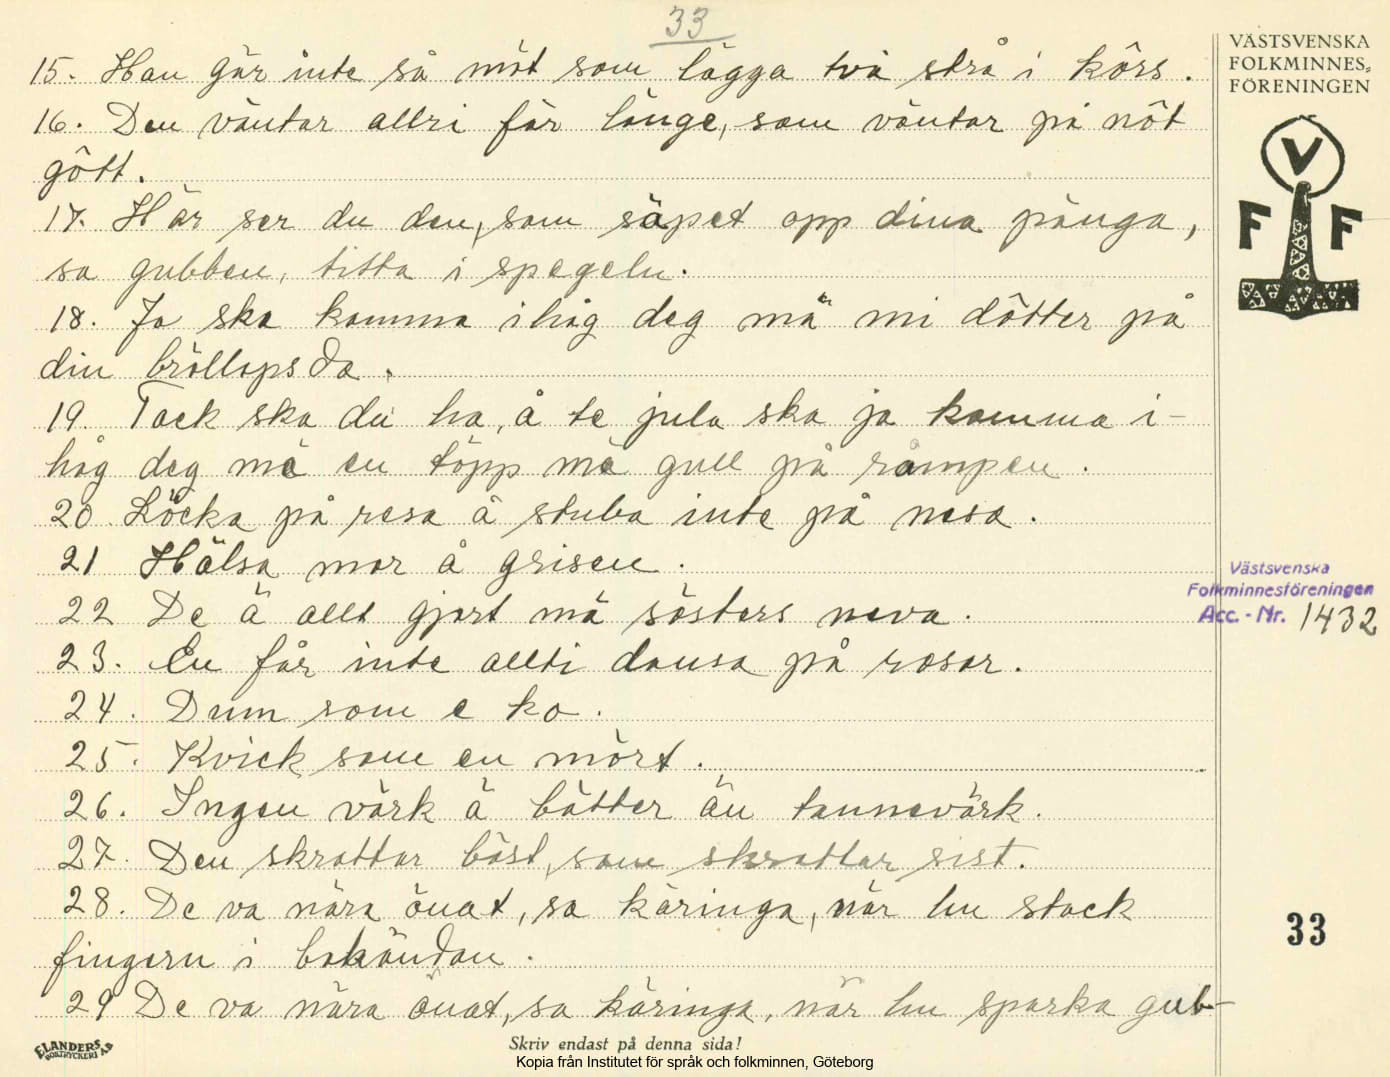 33
VÄSTSVENSKA
FOLKMINNES-
FÖRENINGEN
V
F F
15. Han gör inte så möt som lägga två strå i kôrs.
16. Den väntar allri för länge, som väntar på nôt
gôtt.
17. Här ser du den, som säpet opp dina pänga,
sa gubben, titta i spegeln.
18. Ja ska komma ihåg deg mä mi dôtter på
din bröllopsda.
19. Tack ska du ha, å te jula ska ja komma i-
håg deg mä en töpp mä gull på råmpen.
20. Löcka på resa å stuba inte på nesa.
21 Hälsa mor å grisen.
22 De ä allt gjort mä sösters neva.
23. En får inte allti dansa på rosor.
24. Dum som e ko.
25. Kvick som en mört.
26. Ingen värk ä bätter än tannevärk.
27. Den skrattar bäst, som skrattar sist.
28. De va nära önat, sa käringa, när hu stack
fingern i bakändan.
29 De va nära önat, sa käringa, när hu sparka gub-
Västsvenska
Folkminnesföreningen
Acc.-Nr. 1432
33
ELANDERS
BOKTRYCKERI AB
Skriv endast på denna sida!
Kopia från Institutet för språk och folkminnen, Göteborg